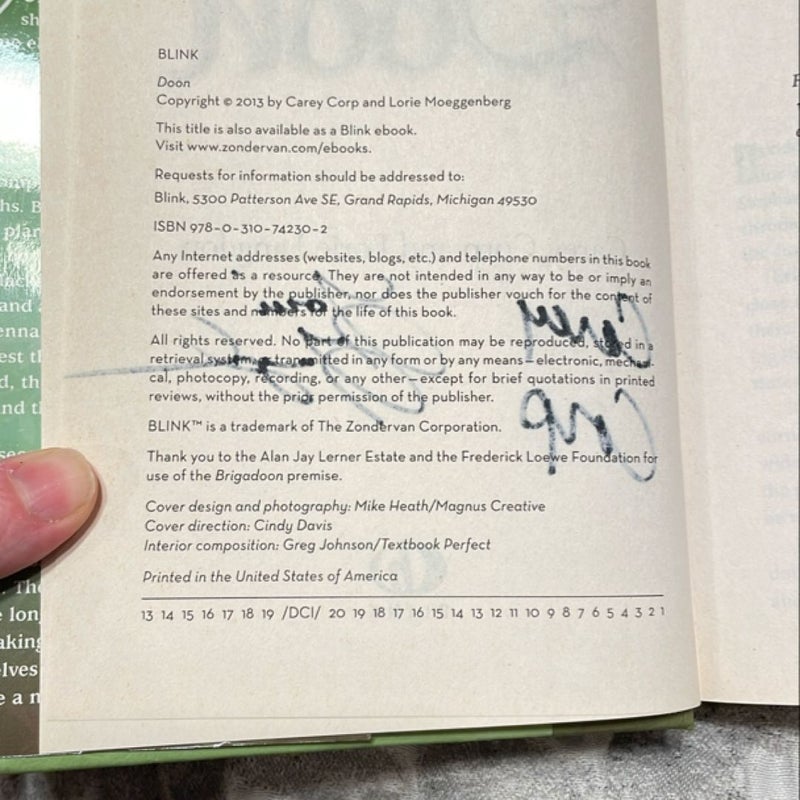 BLINK
Doon
Copyright © 2013 by Carey Corp and Lorie Moeggenberg
This title is also available as a Blink ebook.
Visit www.zondervan.com/ebooks.
Requests for information should be addressed to:
Blink, 5300 Patterson Ave SE, Grand Rapids, Michigan 49530
ISBN 978-0-310-74230-2
Any Internet addresses (websites, blogs, etc.) and telephone numbers in this book
are offered as a resource. They are not intended in any way to be or imply an
endorsement by the publisher, nor does the publisher vouch for the content of
these sites and numbers for the life of this book.
All rights reserved. No part of this publication may be reproduced, stored in a
retrieval system, or transmitted in any form or by any means—electronic, mechani-
cal, photocopy, recording, or any other—except for brief quotations in printed
reviews, without the prior permission of the publisher.
BLINK™ is a trademark of The Zondervan Corporation.
Thank you to the Alan Jay Lerner Estate and the Frederick Loewe Foundation for
use of the Brigadoon premise.
Cover design and photography: Mike Heath/Magnus Creative
Cover direction: Cindy Davis
Interior composition: Greg Johnson/Textbook Perfect
Printed in the United States of America
13 14 15 16 17 18 19 /DCI/ 20 19 18 17 16 15 14 13 12 11 10 9 8 7 6 5 4 3 2 1
Carey
Corp